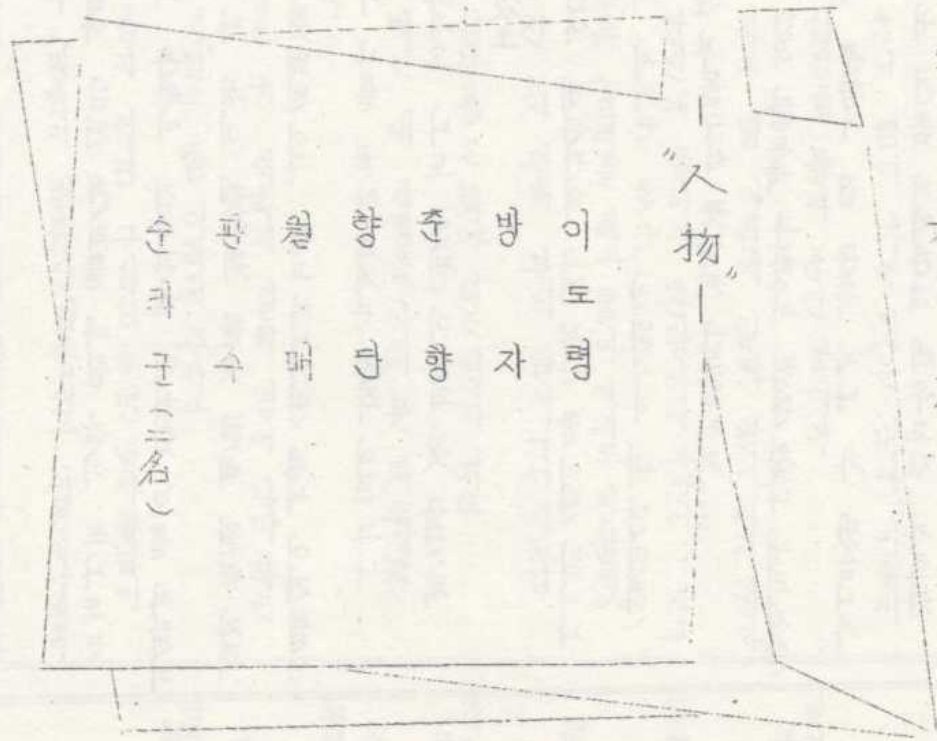 — "人物" —
이도령
방자
춘향
향단
월매
판수
순라군(二名)